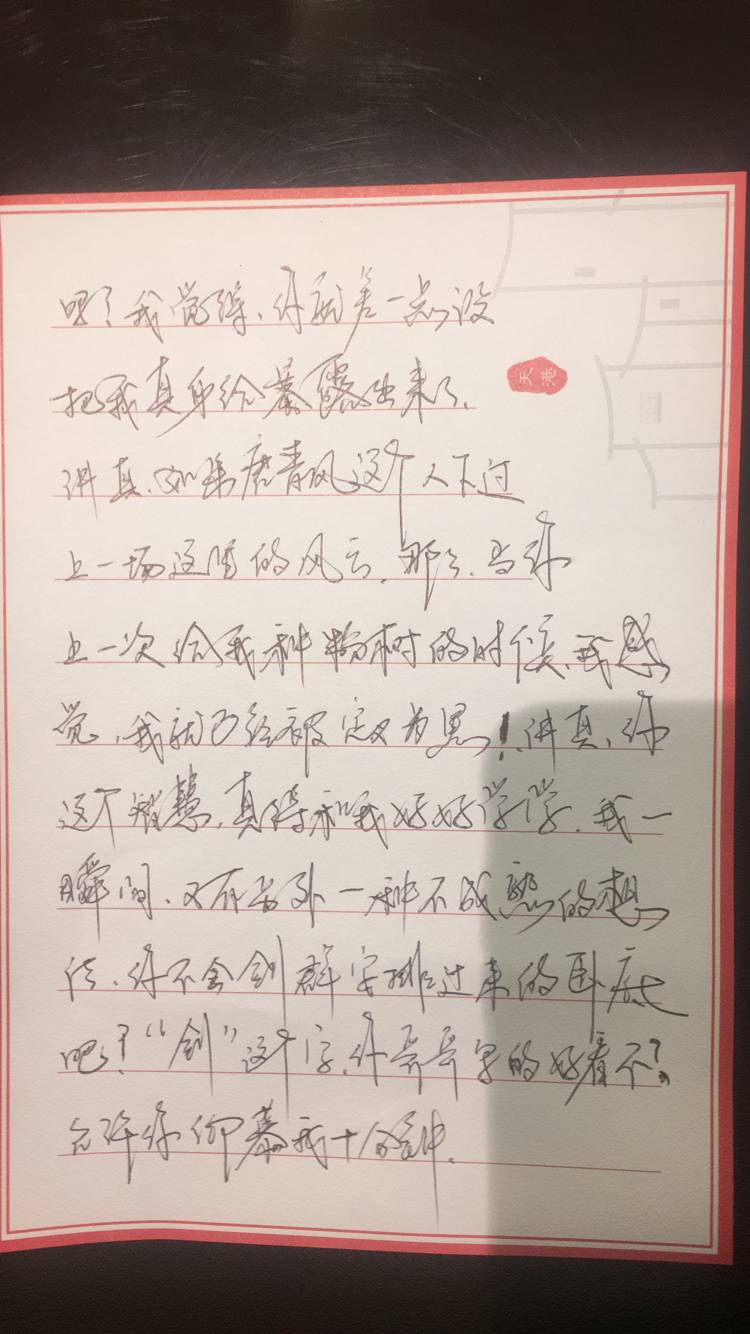 嗯？我觉得，你就差一点没
把我真身给暴露出来了，
讲真，如果唐青风这个人下过
上一场这酒的风云，那么，当你
上一次给我种树的时候，我感
觉，我就已经被定义为黑！讲真，你
这个智慧，真得和我好好学学，我一
瞬间，又有另外一种不成熟的想
法，你不会剑群安排过来的卧底
吧？“剑”这个字，你哥哥写的好看不？
允许你仰慕我十分钟。
天港